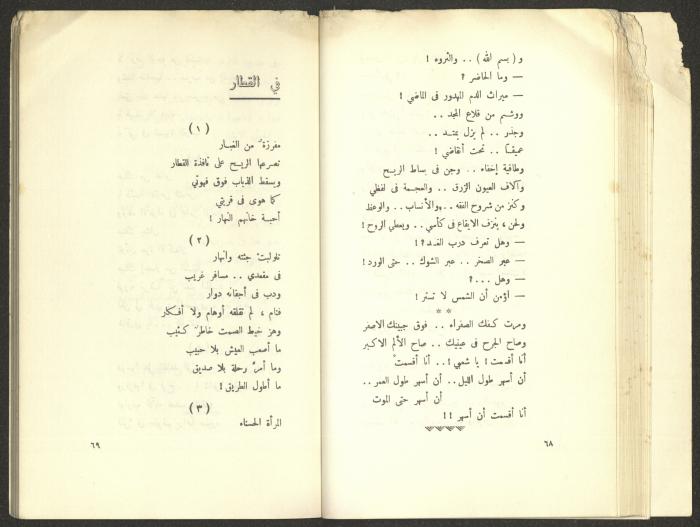 و ( بسم الله ) . . والثروه !
— وما الحاضر ؟
— ميراث الدم المهدور فى الماضي !
ووشم من قلاع المجد . .
وجذر . . لم يزل يمتد . .
عميقاً . . تحت أنقاضي !
وطاقية إخفاء . . وجن فى بساط الريح
وآلاف العيون الزرق . . والعجمة فى لفظي
وكنز من شروح الفقه . . والأنساب . . والوعظ
ولحن ، ينزف الايقاع فى كأسي . . ويعطي الروح !
— وهل تعرف درب الغد ؟!
— عبر الصخر . . عبر الشوك . . حتى الورد !
— وهل . . . ؟
— أؤمن أن الشمس لا تستر !
* *
ومرت كفك الصفراء . . فوق جبينك الاصفر
وصاح الجرح فى عينيك . . صاح الألم الاكبر
أنا أقسمت ! يا شعبي ! . . أنا أقسمت
أن أسهر طول الليل . . أن أسهر طول العمر . .
أن أسهر حتى الموت
أنا أقسمت أن أسهر !!
٦٨
في القطار
( ١ )
مفرزة من الغبار
تصرعها الريح على نافذة القطار
ويسقط الذباب فوق قهوتي
كما هوى فى قريتي
أحبة خانهم النهار !
( ٢ )
تلولبت جثته وانهار
فى مقعدي . . مسافر غريب
ودب فى أجفانه دوار
فنام ، لم تقلقه أوهام ولا أفكار
وهز خيط الصمت خاطر كئيب
ما أصعب العيش بلا حبيب
وما أمرّ رحلة بلا صديق
ما أطول الطريق !
( ٣ )
المرأة الحسناء
٦٩